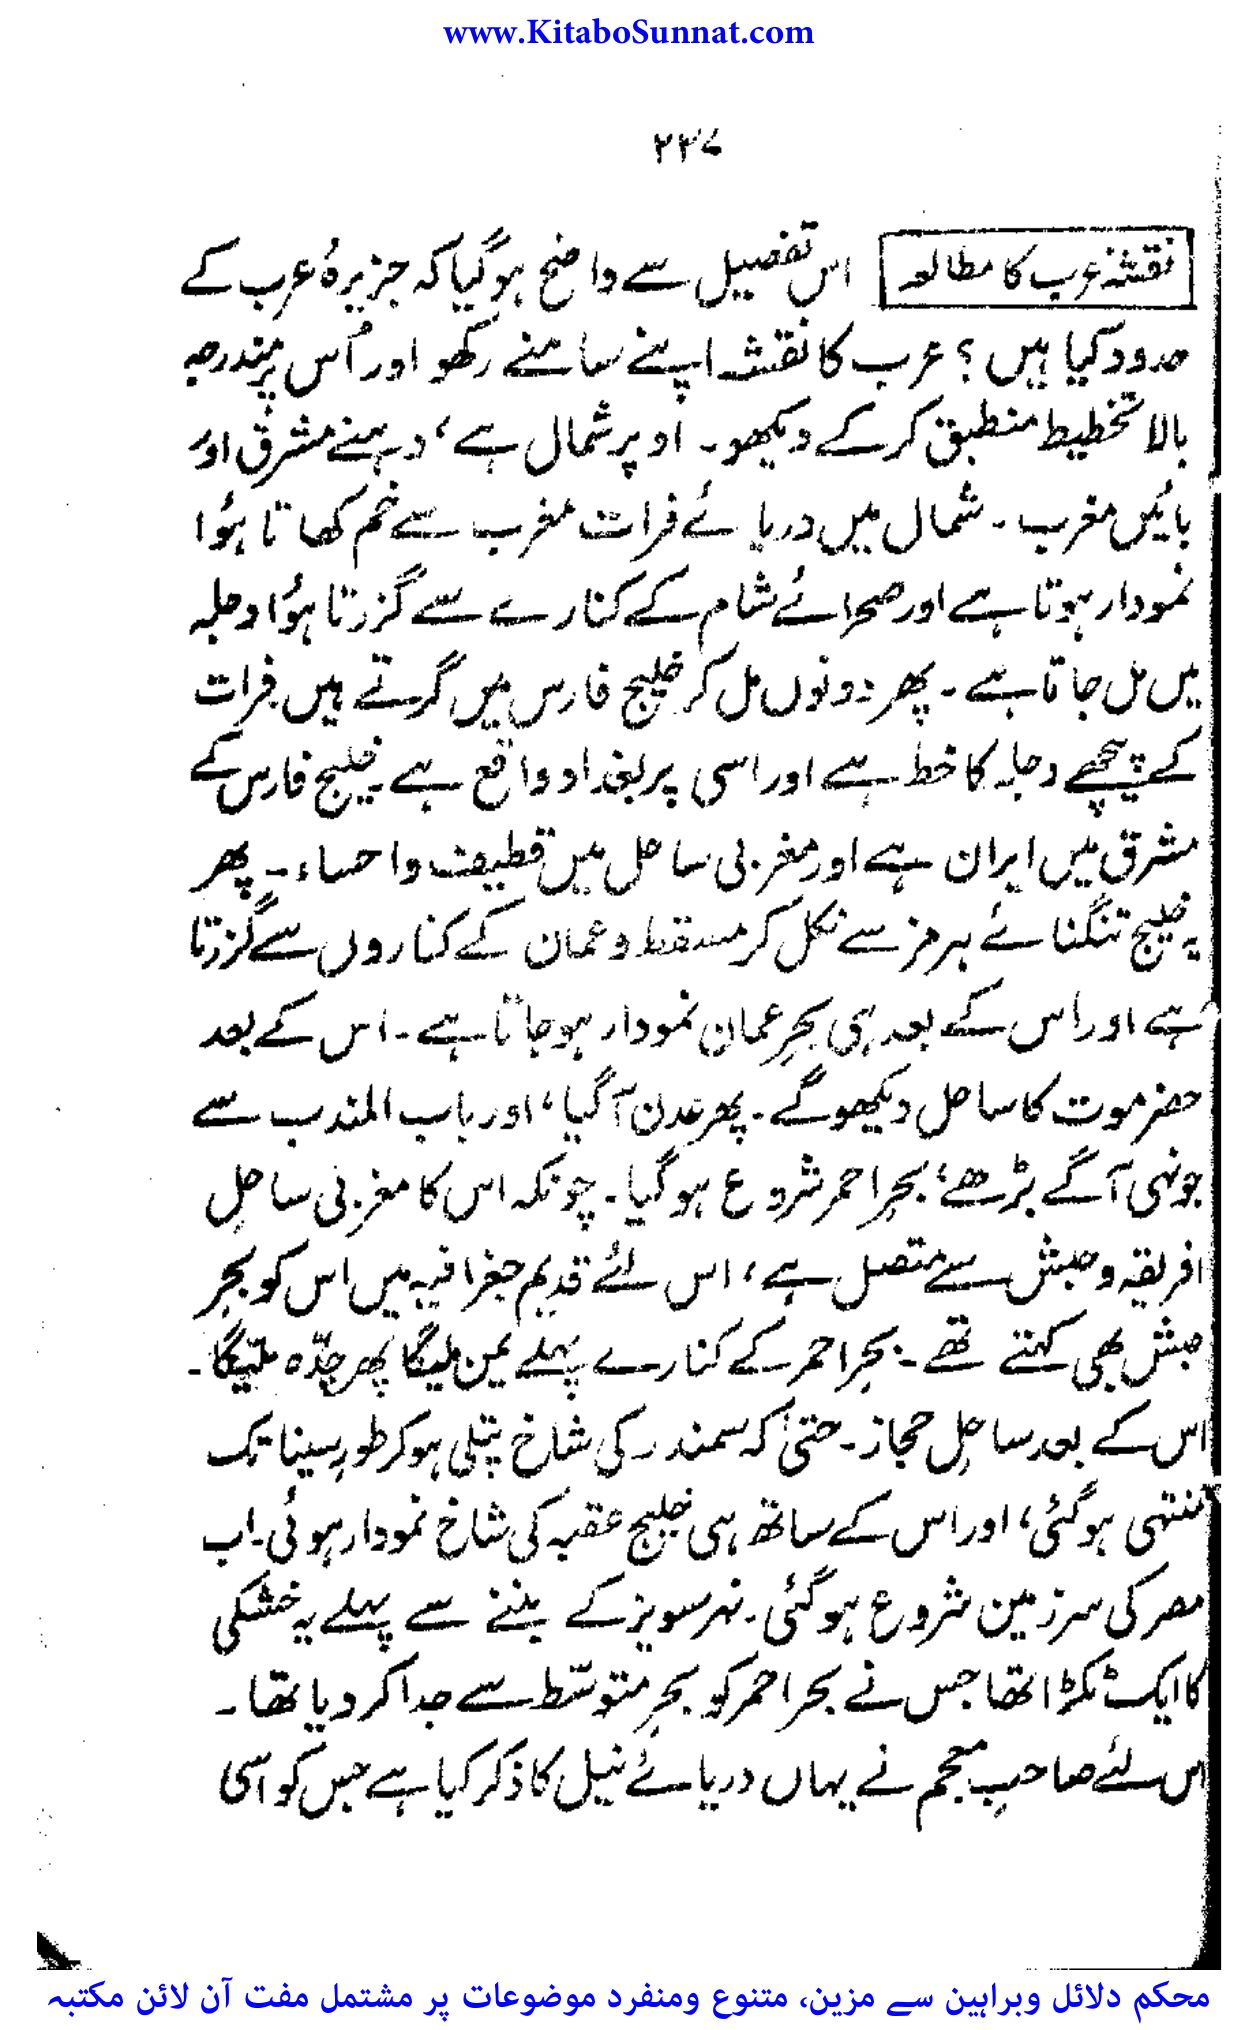 www.KitaboSunnat.com
۲۳۷
نقشۂ عرب کا مطالعہ اس تفصیل سے واضح ہوگیا کہ جزیرۂ عرب کے
حدود کیا ہیں؟ عرب کا نقشہ اپنے سامنے رکھو اور اُس پر مندرجہ
بالا تخطیط منطبق کر کے دیکھو۔ اوپر شمال ہے، دہنے مشرق اور
بائیں مغرب۔ شمال میں دریائے فرات مغرب سے خم کھاتا ہوُا
نمودار ہوتا ہے اور صحرائے شام کے کنارے سے گزرتا ہوُا دجلہ
میں مل جاتا ہے۔ پھر دونوں مل کر خلیج فارس میں گرتے ہیں۔ فرات
کے پیچھے دجلہ کا خط ہے اور اسی پر بغداد واقع ہے۔ خلیج فارس کے
مشرق میں ایران ہے اور مغربی ساحل میں قطیف و احساء۔ پھر
یہ خلیج تنگنائے ہرمز سے نکل کر مسقط و عمان کے کناروں سے گزرتا
ہے اور اس کے بعد ہی بحرِ عمان نمودار ہو جاتا ہے۔ اس کے بعد
حضرموت کا ساحل دیکھو گے۔ پھر عدن آگیا، اور باب المندب سے
جونہی آگے بڑھے، بحرِ احمر شروع ہوگیا۔ چونکہ اس کا مغربی ساحلِ
افریقہ و حبش سے متصل ہے، اس لئے قدیم جغرافیہ میں اس کو بحرِ
حبش بھی کہتے تھے۔ بحرِ احمر کے کنارے پہلے یمن ملیگا پھر جدّہ ملیگا۔
اس کے بعد ساحلِ حجاز۔ حتیٰ کہ سمندر کی شاخ پتلی ہوکر طورِ سینا تک
منتہی ہوگئی، اور اس کے ساتھ ہی خلیج عقبہ کی شاخ نمودار ہوئی۔ اب
مصر کی سرزمین شروع ہوگئی۔ نہر سویز کے بننے سے پہلے یہ خشکی
کا ایک ٹکڑا تھا جس نے بحر احمر کو بحرِ متوسّط سے جدا کر دیا تھا۔
اس لئے صاحبِ معجم نے یہاں دریائے نیل کا ذکر کیا ہے جس کو اسی
محکم دلائل وبراہین سے مزین، متنوع ومنفرد موضوعات پر مشتمل مفت آن لائن مکتبہ